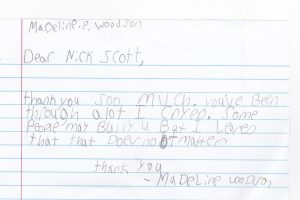 Madeline.P. Woodson
Dear Nick Scott,
thank you soo much. you've Been
through alot I cryed. Some
People may Bully u But I Learen
that that Does not matter
thank you
- MaDeline woodson